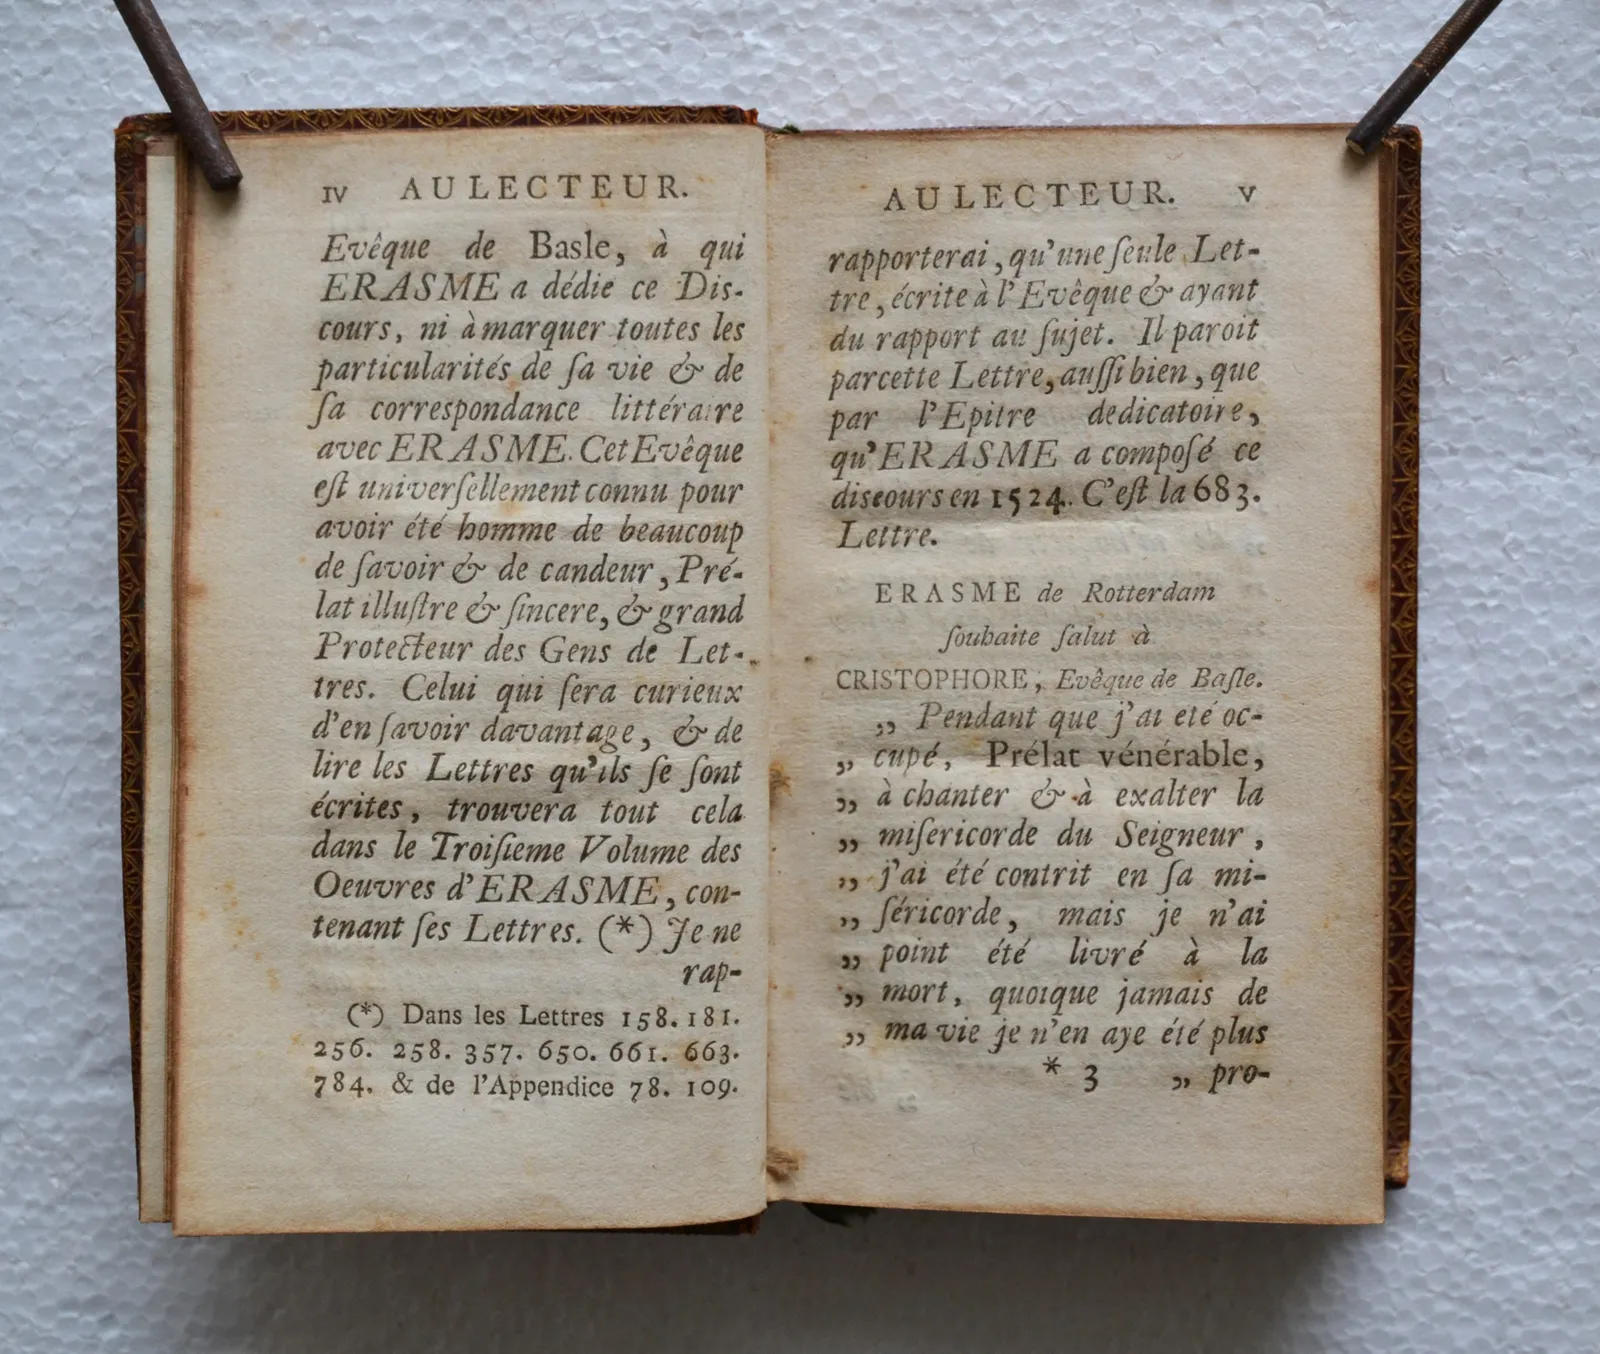 IV AU LECTEUR.
Evêque de Basle, à qui
ERASME a dédie ce Dis-
cours, ni à marquer toutes les
particularités de ſa vie & de
ſa correspondance littéraire
avec ERASME. Cet Evêque
eſt univerſellement connu pour
avoir été homme de beaucoup
de ſavoir & de candeur, Pré-
lat illuſtre & ſincere, & grand
Protecteur des Gens de Let-
tres. Celui qui ſera curieux
d'en ſavoir davantage, & de
lire les Lettres qu'ils ſe ſont
écrites, trouvera tout cela
dans le Troiſieme Volume des
Oeuvres d'ERASME, con-
tenant ſes Lettres. (*) Je ne
rap-
(*) Dans les Lettres 158. 181.
256. 258. 357. 650. 661. 663.
784. & de l'Appendice 78. 109.
AU LECTEUR. V
rapporterai, qu'une ſeule Let-
tre, écrite à l'Evêque & ayant
du rapport au ſujet. Il paroit
par cette Lettre, auſſi bien, que
par l'Epitre dedicatoire,
qu'ERASME a compoſé ce
discours en 1524. C'eſt la 683.
Lettre.
ERASME de Rotterdam
ſouhaite ſalut à
CRISTOPHORE, Evêque de Baſle.
„ Pendant que j'ai eté oc-
„ cupé, Prélat vénérable,
„ à chanter & à exalter la
„ miſericorde du Seigneur,
„ j'ai été contrit en ſa mi-
„ ſéricorde, mais je n'ai
„ point été livré à la
„ mort, quoique jamais de
„ ma vie je n'en aye été plus
* 3 „ pro-